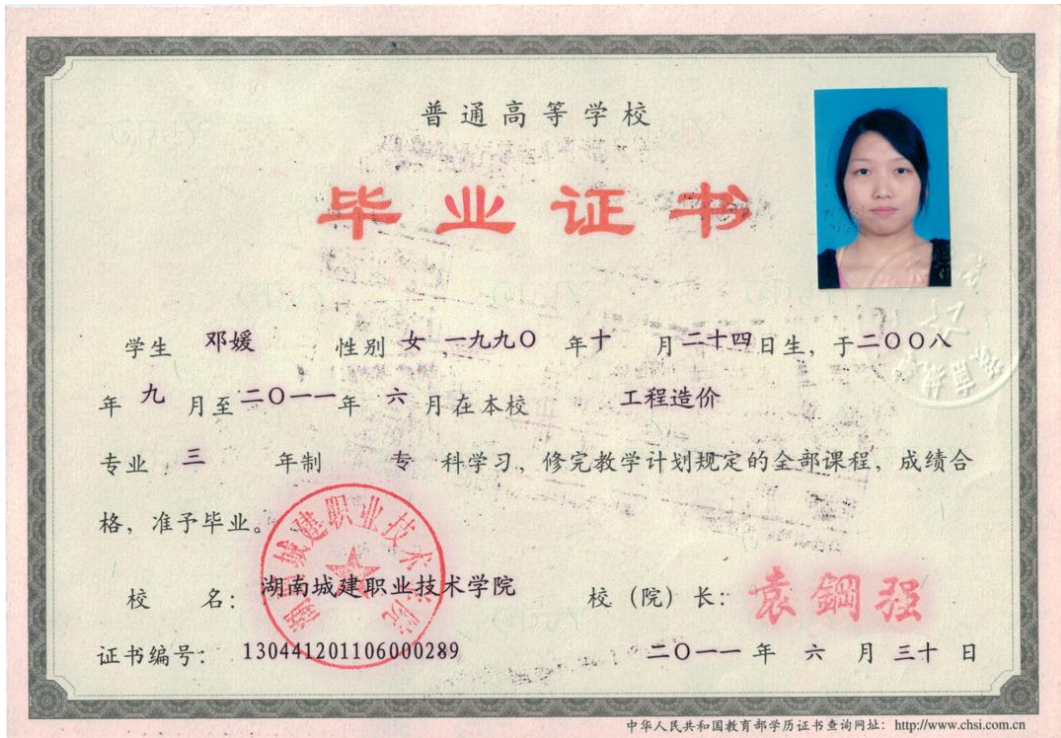 普通高等学校
毕业证书
学生 邓媛 性别 女,一九九〇 年十 月二十四日生,于二〇〇八
年 九 月至二〇一一年 六 月在本校 工程造价
专业 三 年制 专 科学习,修完教学计划规定的全部课程,成绩合
格,准予毕业。
湖南城建职业技术学院
校 名: 湖南城建职业技术学院 校(院)长: 袁鋼强
证书编号: 130441201106000289 二〇一一 年 六 月 三十 日
中华人民共和国教育部学历证书查询网址: http://www.chsi.com.cn